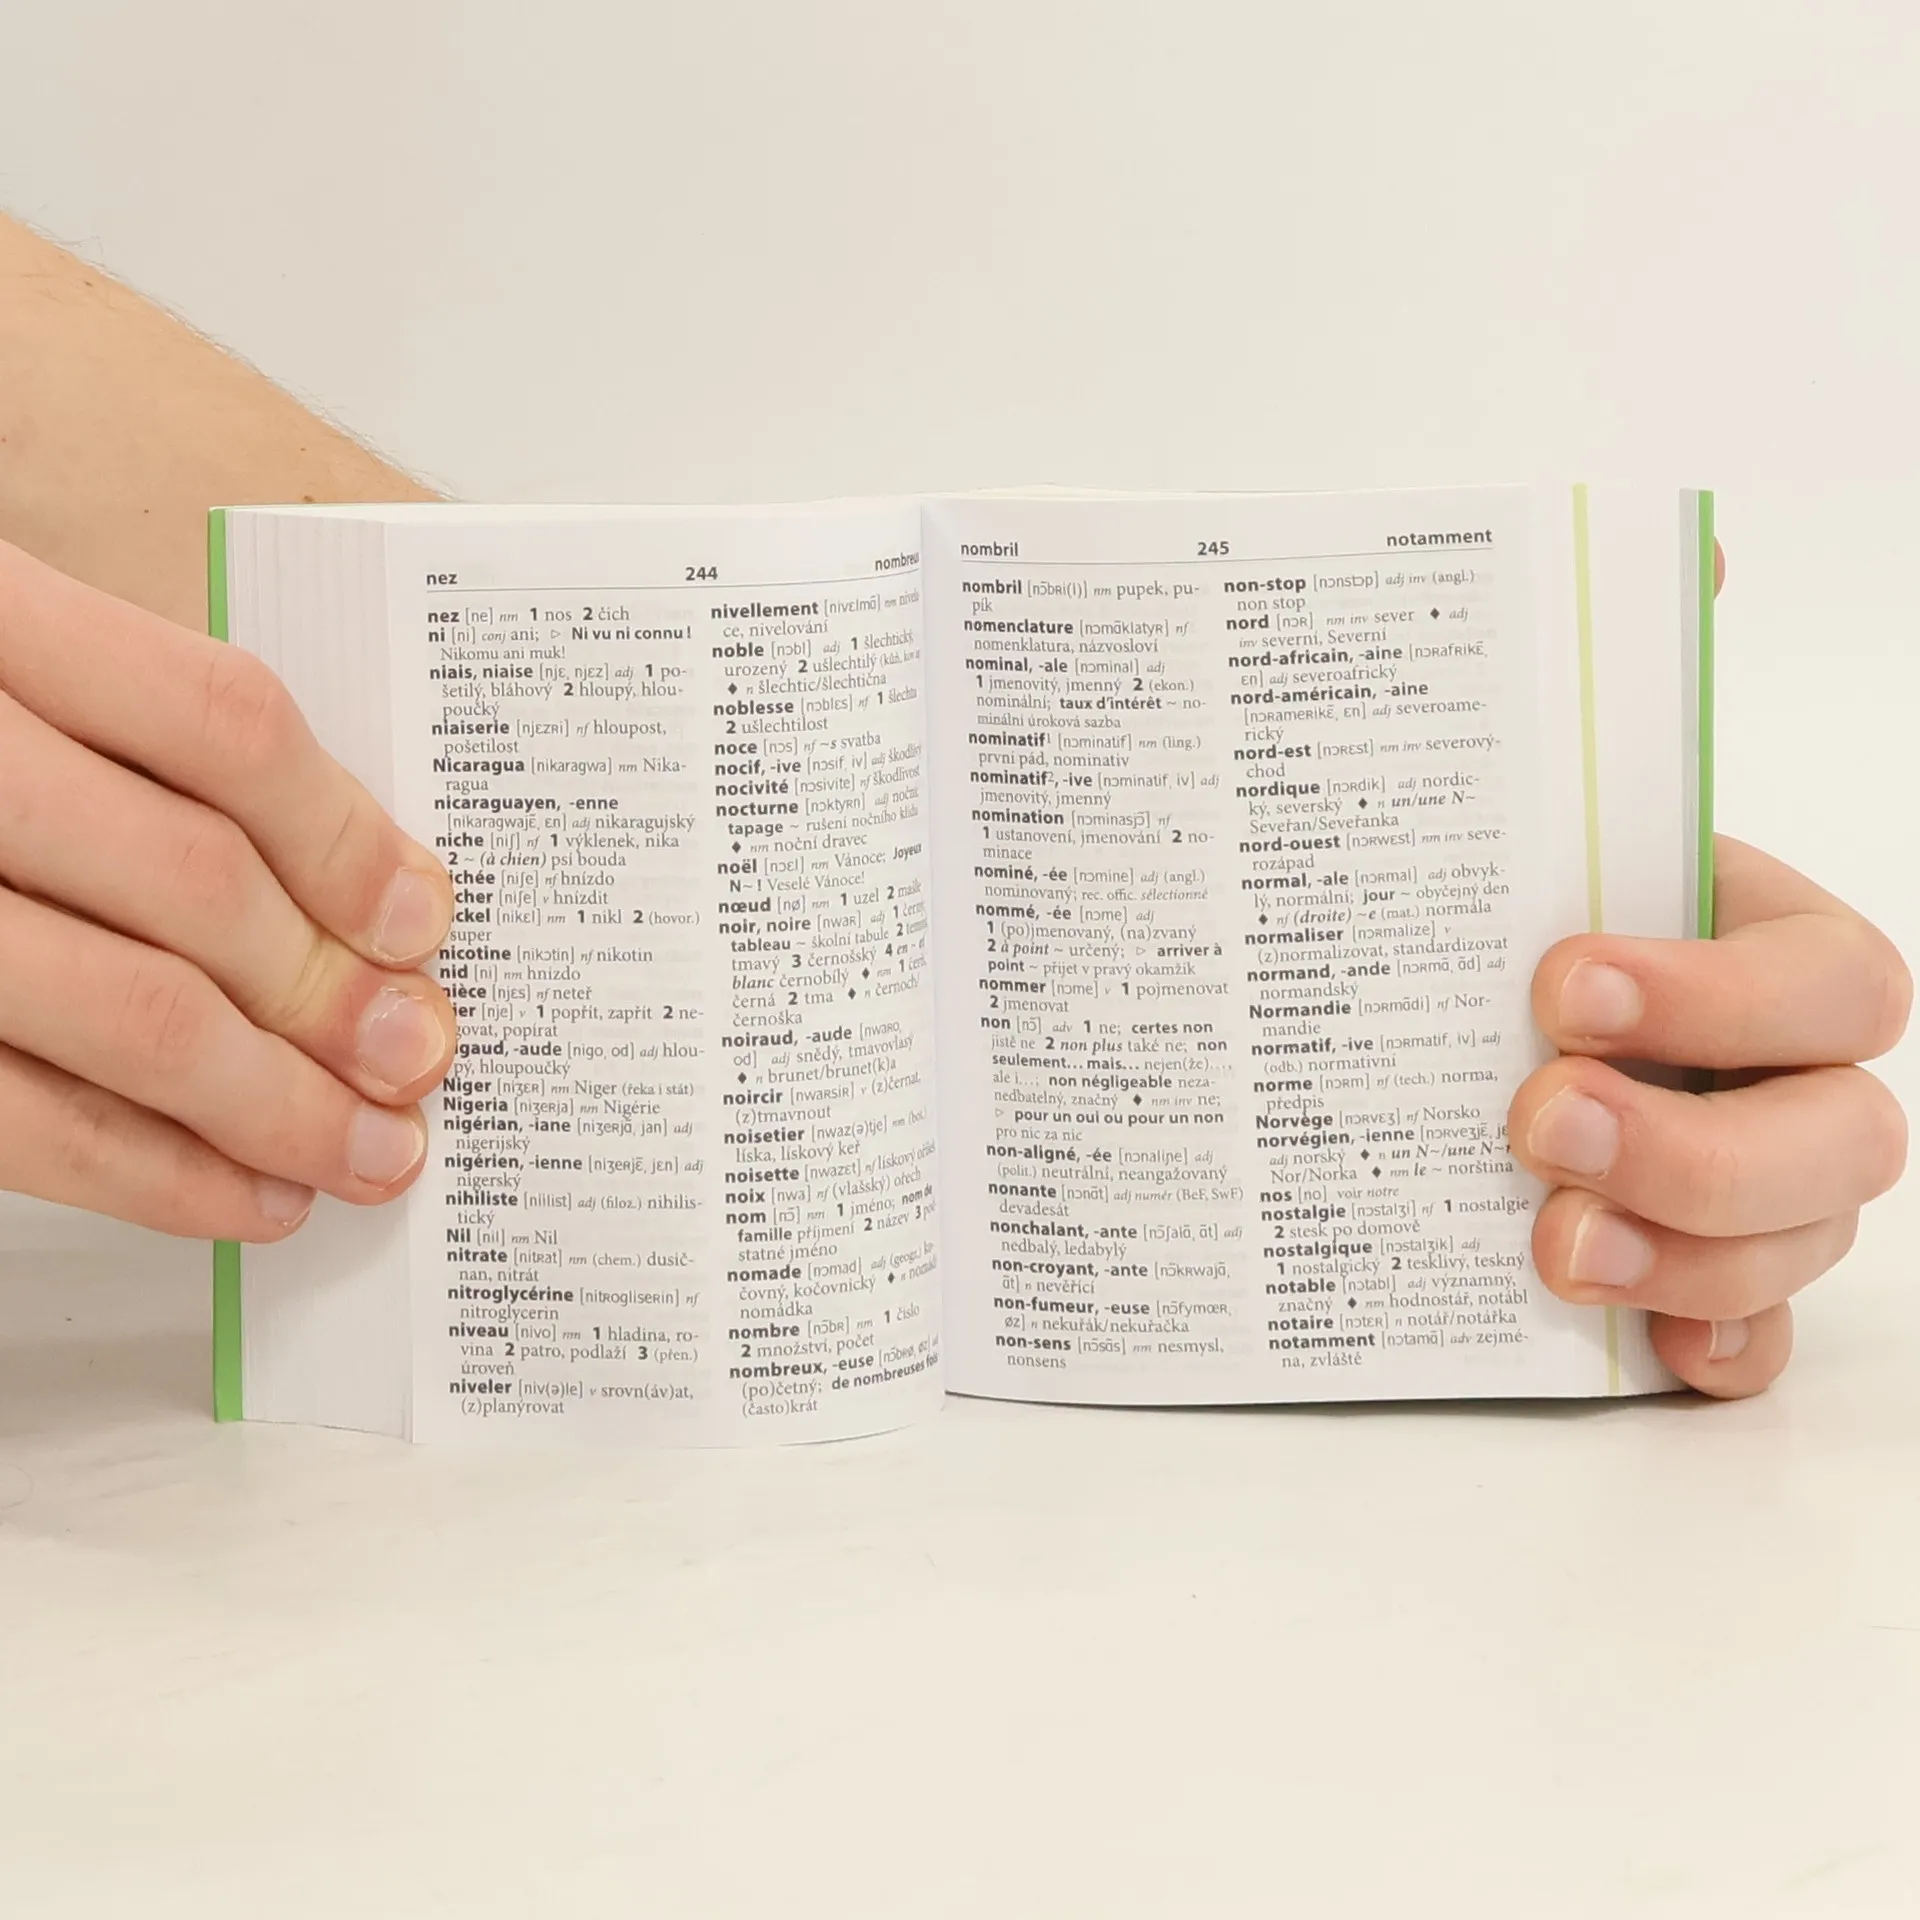 nez 244
nez [ne] nm 1 nos 2 čich
ni [ni] conj ani; ▷ Ni vu ni connu!
Nikomu ani muk!
niais, niaise [njɛ, njɛz] adj 1 po-
šetilý, bláhový 2 hloupý, hlou-
poučký
niaiserie [njɛzʀi] nf hloupost,
pošetilost
Nicaragua [nikaragwa] nm Nika-
ragua
nicaraguayen, -enne
[nikaragwajɛ̃, ɛn] adj nikaragujský
niche [niʃ] nf 1 výklenek, nika
2 ~ (à chien) psí bouda
[niʃe] nf hnízdo
[niʃe] v hnízdit
[nikɛl] nm 1 nikl 2 (hovor.)
super
nicotine [nikɔtin] nf nikotin
nid [ni] nm hnízdo
[njɛs] nf neteř
[nje] v 1 popřít, zapřít 2 ne-
govat, popírat
-aude [nigo, od] adj hlou-
pý, hloupoučký
Niger [niʒɛʀ] nm Niger (řeka i stát)
Nigeria [niʒeʀja] nm Nigérie
nigérian, -iane [niʒeʀjɑ̃, jan] adj
nigerijský
nigérien, -ienne [niʒeʀjɛ̃, jɛn] adj
nigerský
nihiliste [niilist] adj (filoz.) nihilis-
tický
Nil [nil] nm Nil
nitrate [nitʀat] nm (chem.) dusič-
nan, nitrát
nitroglycérine [nitʀogliseʀin] nf
nitroglycerin
niveau [nivo] nm 1 hladina, ro-
vina 2 patro, podlaží 3 (přen.)
úroveň
niveler [niv(ə)le] v srovn(áv)at,
(z)planýrovat
nivellement [nivɛlmɑ̃] nm
ce, nivelování
noble [nɔbl] adj 1 šlechtický,
urozený 2 ušlechtilý
◆ n šlechtic/šlechtična
noblesse [nɔblɛs] nf 1 šlechta
2 ušlechtilost
noce [nɔs] nf ~s svatba
nocif, -ive [nɔsif, iv] adj škodlivý
nocivité [nɔsivite] nf škodlivost
nocturne [nɔktyʀn] adj noční;
tapage ~ rušení nočního klidu
◆ nm noční dravec
noël [nɔɛl] nm Vánoce; Joyeux
N~! Veselé Vánoce!
nœud [nø] nm 1 uzel 2 mašle
noir, noire [nwaʀ] adj 1 černý;
tableau ~ školní tabule 2 temný,
tmavý 3 černošský 4 en ~ et
blanc černobílý ◆ nm 1 čerň,
černá 2 tma ◆ n černoch/
černoška
noiraud, -aude [nwaʀo,
od] adj snědý, tmavovlasý
◆ n brunet/brunet(k)a
noircir [nwaʀsiʀ] v (z)černat,
(z)tmavnout
noisetier [nwaz(ə)tje] nm (bot.)
líska, lískový keř
noisette [nwazɛt] nf lískový oříšek
noix [nwa] nf (vlašský) ořech
nom [nɔ̃] nm 1 jméno; nom de
famille příjmení 2 název 3 pod-
statné jméno
nomade [nɔmad] adj (geogr.) ko-
čovný, kočovnický ◆ n nomád/
nomádka
nombre [nɔ̃bʀ] nm 1 číslo
2 množství, počet
nombreux, -euse [nɔ̃bʀø, øz] adj
(po)četný; de nombreuses fois
(často)krát
nombril 245 notamment
nombril [nɔ̃bʀi(l)] nm pupek, pu-
pík
nomenclature [nɔmɑ̃klatyʀ] nf
nomenklatura, názvosloví
nominal, -ale [nɔminal] adj
1 jmenovitý, jmenný 2 (ekon.)
nominální; taux d'intérêt ~ no-
minální úroková sazba
nominatif¹ [nɔminatif] nm (ling.)
první pád, nominativ
nominatif², -ive [nɔminatif, iv] adj
jmenovitý, jmenný
nomination [nɔminasjɔ̃] nf
1 ustanovení, jmenování 2 no-
minace
nominé, -ée [nɔmine] adj (angl.)
nominovaný; rec. offic. sélectionné
nommé, -ée [nɔme] adj
1 (po)jmenovaný, (na)zvaný
2 à point ~ určený; ▷ arriver à
point ~ přijet v pravý okamžik
nommer [nɔme] v 1 pojmenovat
2 jmenovat
non [nɔ̃] adv 1 ne; certes non
jistě ne 2 non plus také ne; non
seulement... mais... nejen(že)...,
ale i...; non négligeable neza-
nedbatelný, značný ◆ nm inv ne;
▷ pour un oui ou pour un non
pro nic za nic
non-aligné, -ée [nɔnaliɲe] adj
(polit.) neutrální, neangažovaný
nonante [nɔnɑ̃t] adj numér (BeF, SwF)
devadesát
nonchalant, -ante [nɔ̃ʃalɑ̃, ɑ̃t] adj
nedbalý, ledabylý
non-croyant, -ante [nɔ̃kʀwajɑ̃,
ɑ̃t] n nevěřící
non-fumeur, -euse [nɔ̃fymœʀ,
øz] n nekuřák/nekuřačka
non-sens [nɔ̃sɑ̃s] nm nesmysl,
nonsens
non-stop [nɔnstɔp] adj inv (angl.)
non stop
nord [nɔʀ] nm inv sever ◆ adj
inv severní, Severní
nord-africain, -aine [nɔʀafʀikɛ̃,
ɛn] adj severoafrický
nord-américain, -aine
[nɔʀameʀikɛ̃, ɛn] adj severoame-
rický
nord-est [nɔʀɛst] nm inv severový-
chod
nordique [nɔʀdik] adj nordic-
ký, severský ◆ n un/une N~
Seveřan/Seveřanka
nord-ouest [nɔʀwɛst] nm inv seve-
rozápad
normal, -ale [nɔʀmal] adj obvyk-
lý, normální; jour ~ obyčejný den
◆ nf (droite) ~e (mat.) normála
normaliser [nɔʀmalize] v
(z)normalizovat, standardizovat
normand, -ande [nɔʀmɑ̃, ɑ̃d] adj
normandský
Normandie [nɔʀmɑ̃di] nf Nor-
mandie
normatif, -ive [nɔʀmatif, iv] adj
(odb.) normativní
norme [nɔʀm] nf (tech.) norma,
předpis
Norvège [nɔʀvɛʒ] nf Norsko
norvégien, -ienne [nɔʀveʒjɛ̃,
adj norský ◆ n un N~/une N~
Nor/Norka ◆ nm le ~ norština
nos [no] voir notre
nostalgie [nɔstalʒi] nf 1 nostalgie
2 stesk po domově
nostalgique [nɔstalʒik] adj
1 nostalgický 2 tesklivý, teskný
notable [nɔtabl] adj významný,
značný ◆ nm hodnostář, notábl
notaire [nɔtɛʀ] n notář/notářka
notamment [nɔtamɑ̃] adv zejmé-
na, zvláště